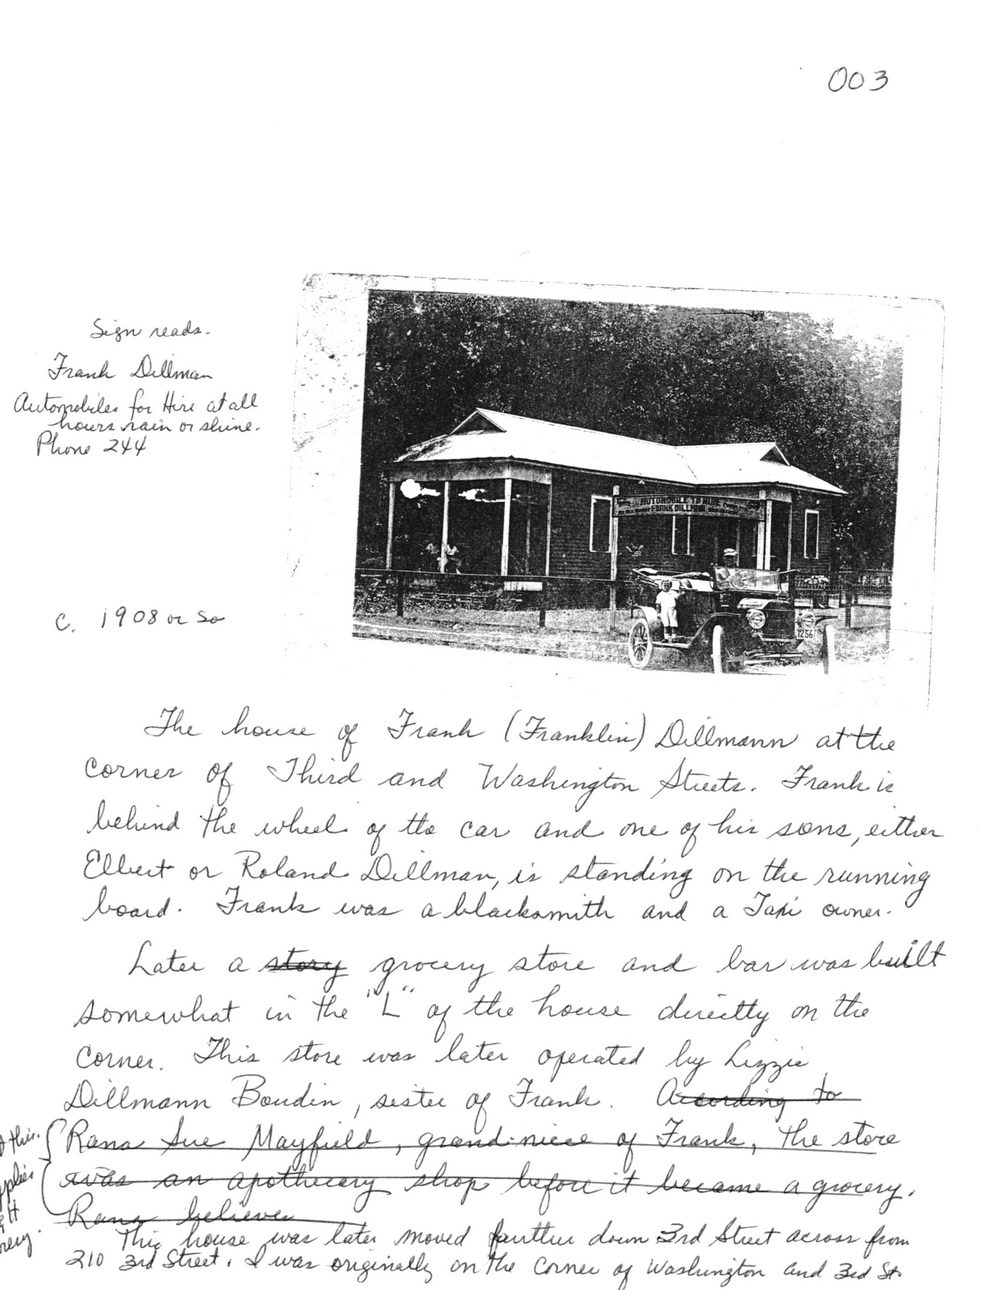 003
Sign reads.
Frank Dillman
Automobiles for Hire at all
hours rain or shine.
Phone 244
AUTOMOBILE TO HIRE
FRANK DILLMAN
1256
C. 1908 or so
The house of Frank (Franklin) Dillmann at the
corner of Third and Washington Streets. Frank is
behind the wheel of the car and one of his sons, either
Elbert or Roland Dillman, is standing on the running
board. Frank was a blacksmith and a Taxi owner.
Later a story grocery store and bar was built
somewhat in the "L" of the house directly on the
corner. This store was later operated by Lizzie
Dillmann Boudin, sister of Frank. According to
Rana Sue Mayfield, grand-niece of Frank, the store
was an apothecary shop before it became a grocery.
Rana believe
this.
This house was later moved further down 3rd Street across from
210 3rd Street. I was originally on the corner of Washington and 3rd St.